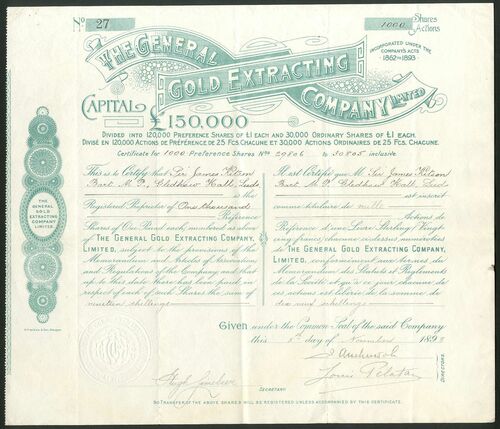 No 27
1000 Shares Actions
THE GENERAL
GOLD EXTRACTING
COMPANY LIMITED
INCORPORATED UNDER THE
COMPANYS ACTS
1862 TO 1893
CAPITAL
£150,000
DIVIDED INTO 120,000 PREFERENCE SHARES OF £1 EACH AND 30,000 ORDINARY SHARES OF £1 EACH.
DIVISÉ EN 120,000 ACTIONS DE PRÉFÉRENCE DE 25 FCS. CHACUNE ET 30,000 ACTIONS ORDINAIRES DE 25 FCS. CHACUNE.
Certificate for 1000 Preference Shares Nos 29806 to 30805 inclusive
This is to Certify that Sir James Kitson
Bart M.P. Gledhow Hall, Leeds
is the
Registered Proprietor of One thousand
Preference
Shares of One Pound each numbered as above
of THE GENERAL GOLD EXTRACTING COMPANY,
LIMITED, subject to the provisions of the
Memorandum and Articles of Association
and Regulations of the Company and that
up to this date there has been paid in
respect of each of such Shares the sum of
nineteen shillings
Il est Certifié que M. Sir James Kitson
Bart M.P. Gledhow Hall, Leeds
est inscrit
comme titulaire de mille
Actions de
Préférence d'une Livre Sterling/Vingt-
cinq francs, chacune ci-dessus numérotées
de THE GENERAL GOLD EXTRACTING COMPANY,
LIMITED, conformément aux termes du
Memorandum des Statuts et Règlements
de la Société et qu'à ce jour chacune de
ces actions est libérée de la somme de
dix neuf schellings
THE
GENERAL
GOLD
EXTRACTING
COMPANY
LIMITED.
Given under the Common Seal of the said Company
this 5th day of November 189
DIRECTORS.
SECRETARY.
NO TRANSFER OF THE ABOVE SHARES WILL BE REGISTERED UNLESS ACCOMPANIED BY THIS CERTIFICATE.